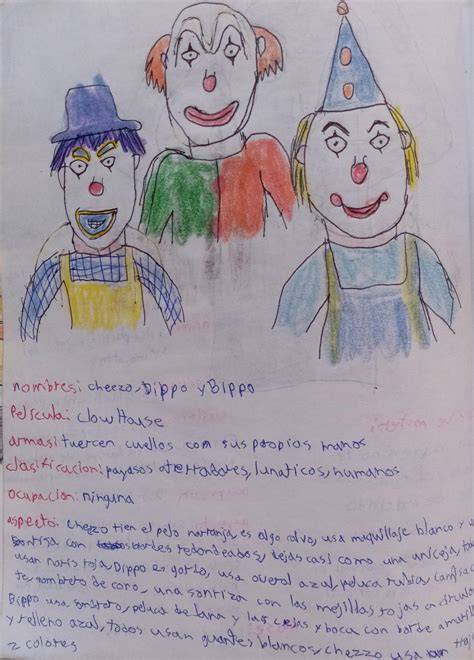 nombres: cheezo, Dippo y Bippo
Película: Clow House
armas: tuercen cuellos com sus propios manos
clasificacion: payasos aterradores, lunaticos, humanos
ocupacion: ninguna
aspecto: chezzo tien el pelo naranja, es algo calvo, usa maquillaje blanco y
sonrisa con bordes redondeados, cejas casi como una unicejo,
usan naris roja, Dippo es gordo, usa overol azul, peluca rubia,
te, sombrero de cono, una sonriza con las mejillas rojas en circulo
Bippo usa sombrero, peluca de lana y las cejas y boca con borde
y relleno azul, todos usan guantes blancos, chezzo usa un
2 colores